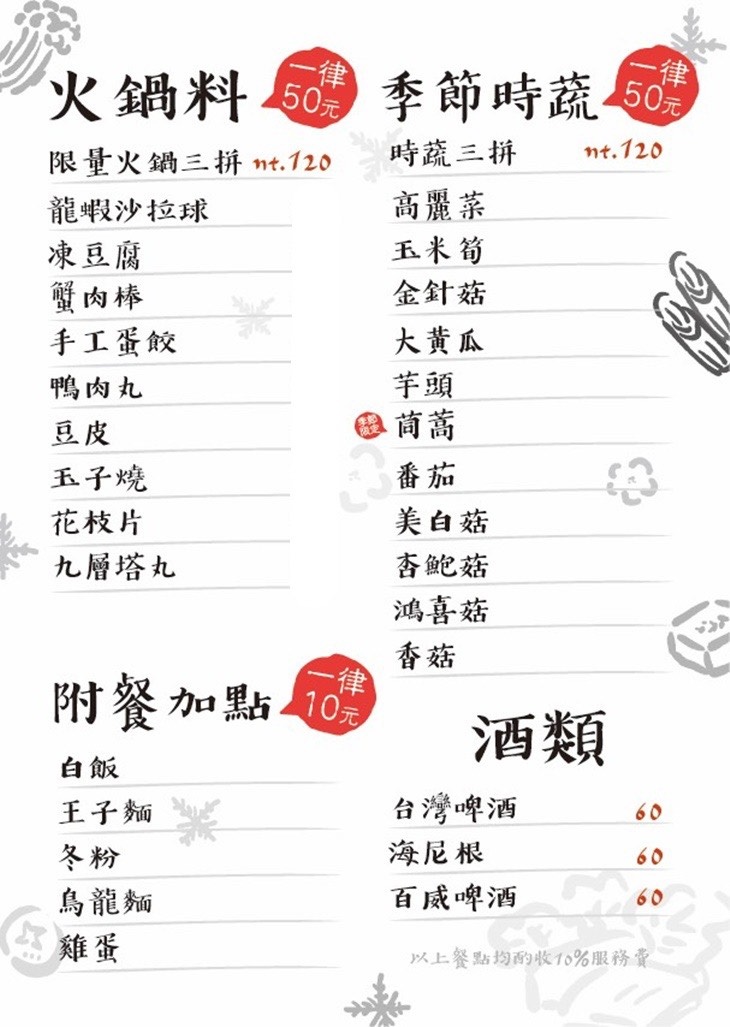 火鍋料
一律
50元
限量火鍋三拼 nt.120
龍蝦沙拉球
凍豆腐
蟹肉棒
手工蛋餃
鴨肉丸
豆皮
玉子燒
花枝片
九層塔丸
季節時蔬
一律
50元
時蔬三拼 nt.120
高麗菜
玉米筍
金針菇
大黃瓜
芋頭
季節
限定
茼蒿
番茄
美白菇
杏鮑菇
鴻喜菇
香菇
附餐加點
一律
10元
白飯
王子麵
冬粉
烏龍麵
雞蛋
酒類
台灣啤酒 60
海尼根 60
百威啤酒 60
以上餐點均酌收10%服務費